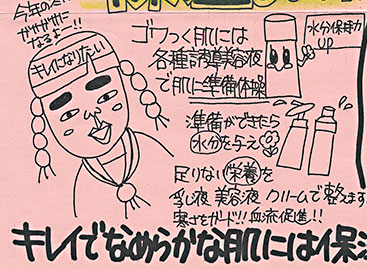 今年の冬も
ガサガサに
なるよー!!
キレイになりたい
ゴワつく肌には
各種誘導美容液
で肌に準備体操
水分保持力
UP
準備ができたら
水分を与え
足りない栄養を
乳液 美容液 クリームで整えます
寒さをガード!! 血流促進!!
キレイでなめらかな肌には保